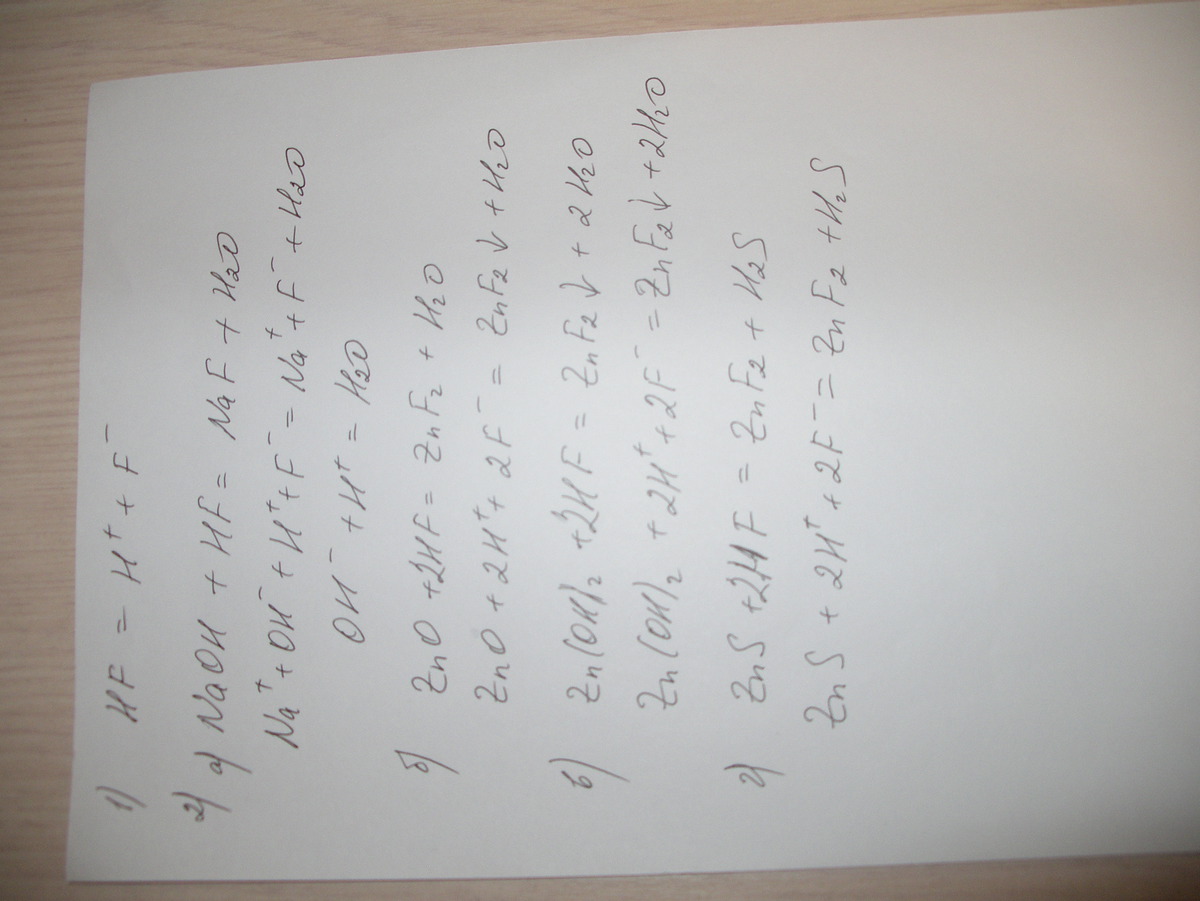 1) HF = H⁺ + F⁻
2) а) NaOH + HF = NaF + H₂O
Na⁺ + OH⁻ + H⁺ + F⁻ = Na⁺ + F⁻ + H₂O
OH⁻ + H⁺ = H₂O
б) ZnO + 2HF = ZnF₂ + H₂O
ZnO + 2H⁺ + 2F⁻ = ZnF₂↓ + H₂O
в) Zn(OH)₂ + 2HF = ZnF₂↓ + 2H₂O
Zn(OH)₂ + 2H⁺ + 2F⁻ = ZnF₂↓ + 2H₂O
г) ZnS + 2HF = ZnF₂ + H₂S
ZnS + 2H⁺ + 2F⁻ = ZnF₂ + H₂S